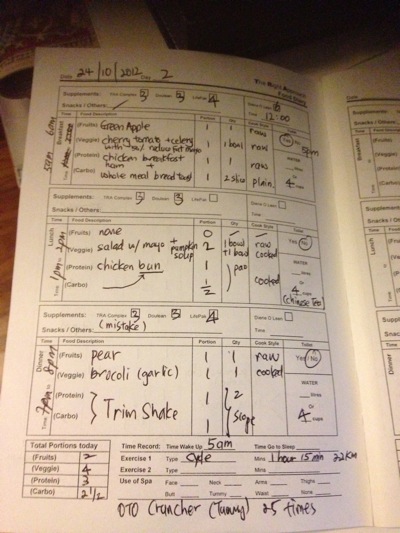 Date 24/10/2012 Day 2
The Right Approach
Food Diary
Supplements: TRA Complex 3 Doulean 3 LitePak 4
Snacks / Others:
Time 12:00
Breakfast
Time Food Description Portion Qty Cook Style Toilet
(Fruits) Green Apple 1 1 raw Yes / No
5pm
(Veggie) cherry tomato + celery 1 1 bowl raw
(Protein) chicken breakfast ham + 1 1 raw WATER
(Carbo) whole meal bread toast 1 2 slice plain. 4 cups
Supplements: TRA Complex 3 Doulean 3 LitePak
Snacks / Others:
Lunch
Time 1pm to 2pm
Food Description Portion Qty Cook Style Toilet
(Fruits) none 0 Yes / No
(Veggie) salad w/ mayo + pumpkin soup 2 1 bowl +1 bowl raw cooked
(Protein) chicken bun 1 WATER
(Carbo) 1/2 cooked Or 4 cups
(Chinese Tea)
Supplements: TRA Complex Doulean 3 LitePak 4
(mistake)
Snacks / Others:
Time
Dinner
8pm
Food Description Portion Qty Cook Style Toilet
(Fruits) pear 1 1 raw Yes / No
(Veggie) brocoli (garlic) 1 1 cooked
(Protein) Trim Shake 1 2 WATER
(Carbo) 1 Or 4 cups
Total Portions today
(Fruits) 2
(Veggie) 4
(Protein) 3
(Carbo) 2 1/2
Time Record: Time Wake Up 5am Time Go to Sleep
Exercise 1 Type Cycle Mins 1 hour 15 min 22km
Exercise 2 Type Mins
Use of Spa Face Neck Arms Thighs
Butt Tummy Waist None
OTO Cruncher (Tummy) 25 times